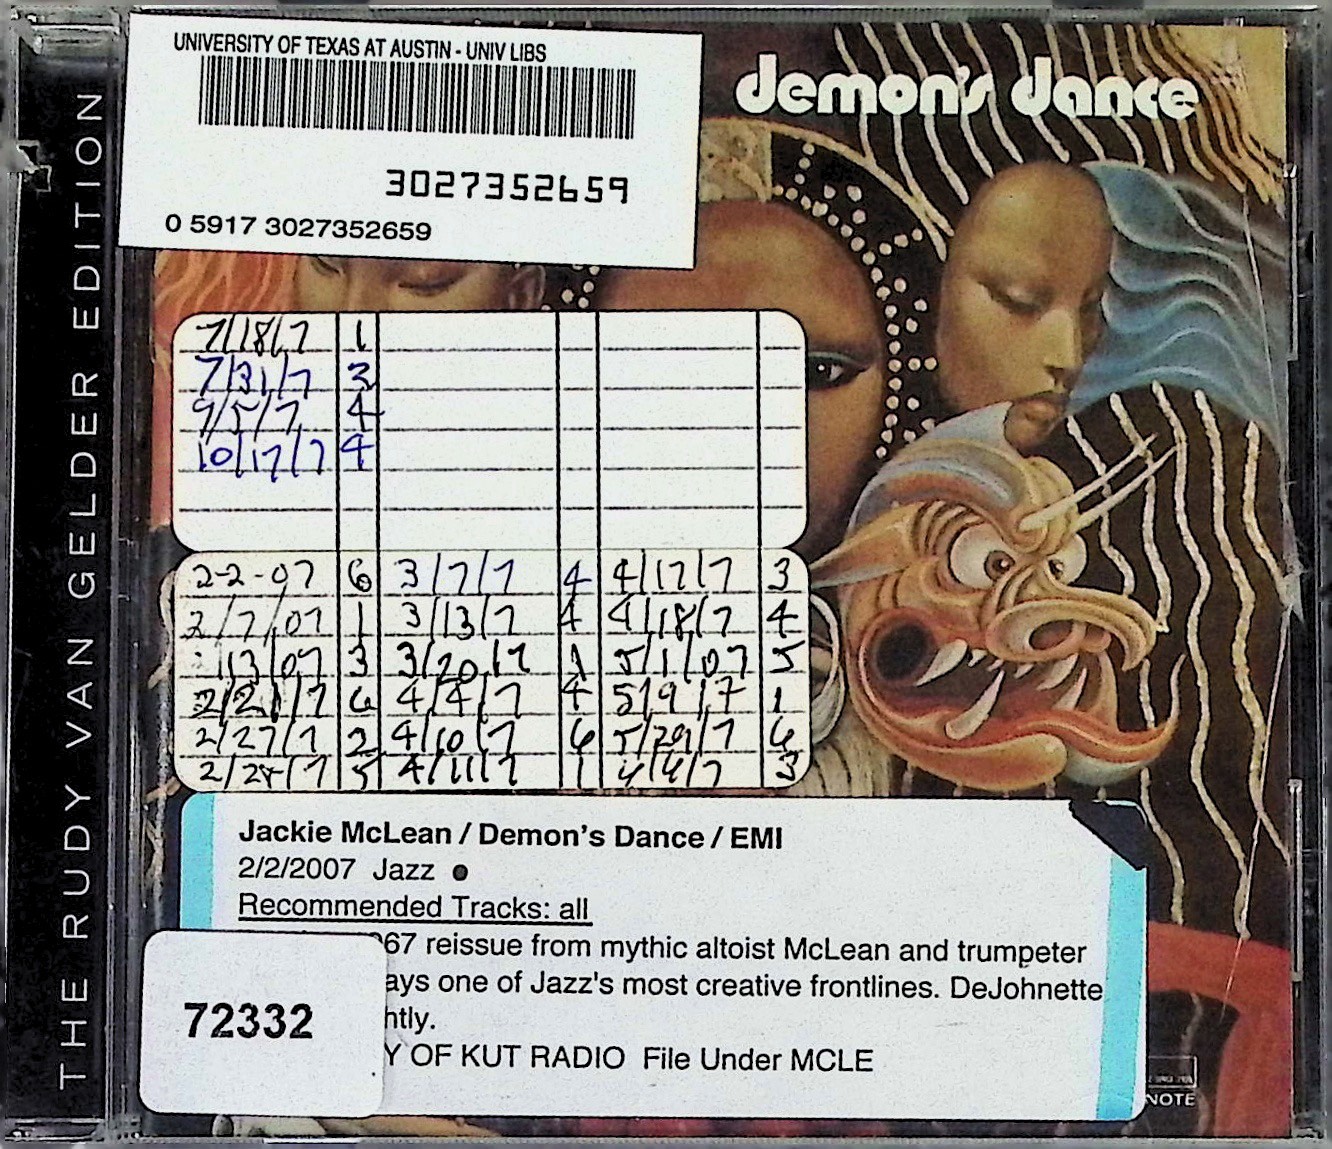 THE RUDY VAN GELDER EDITION
UNIVERSITY OF TEXAS AT AUSTIN - UNIV LIBS
3027352659
0 5917 3027352659
demon's dance
7/18/7 1
7/31/7 2
9/5/7 4
10/17/7 4
2-2-07 6 3/7/7 4 4/17/7 3
2/7/07 1 3/13/7 4 4/18/7 4
/13/07 3 3/20/7 1 5/1/07 5
2/21/7 6 4/4/7 4 5/9/7 1
2/27/7 2 4/10/7 6 5/29/7 6
2/28/7 5 4/11/7 1 3
Jackie McLean / Demon's Dance / EMI
2/2/2007 Jazz ●
Recommended Tracks: all
67 reissue from mythic altoist McLean and trumpeter
ays one of Jazz's most creative frontlines. DeJohnette
htly.
Y OF KUT RADIO File Under MCLE
72332
NOTE